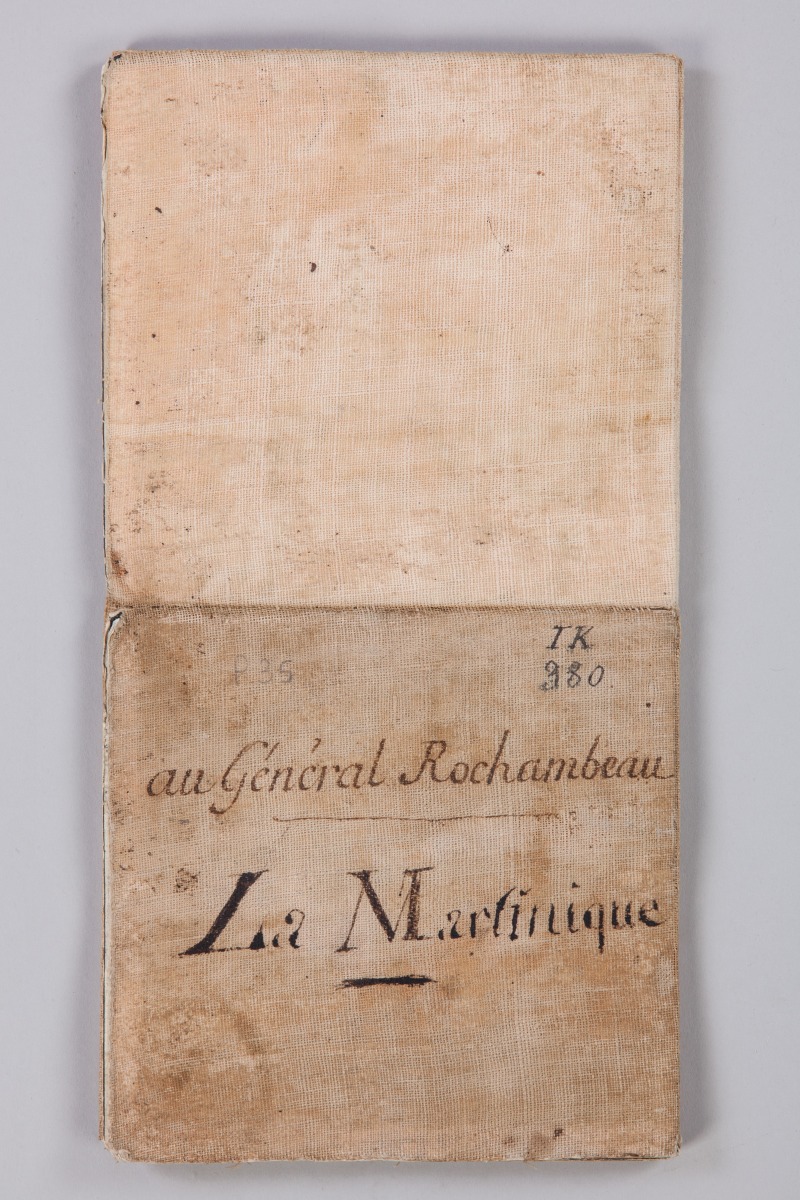 IK
980
P 35
au Général Rochambeau
La Martinique